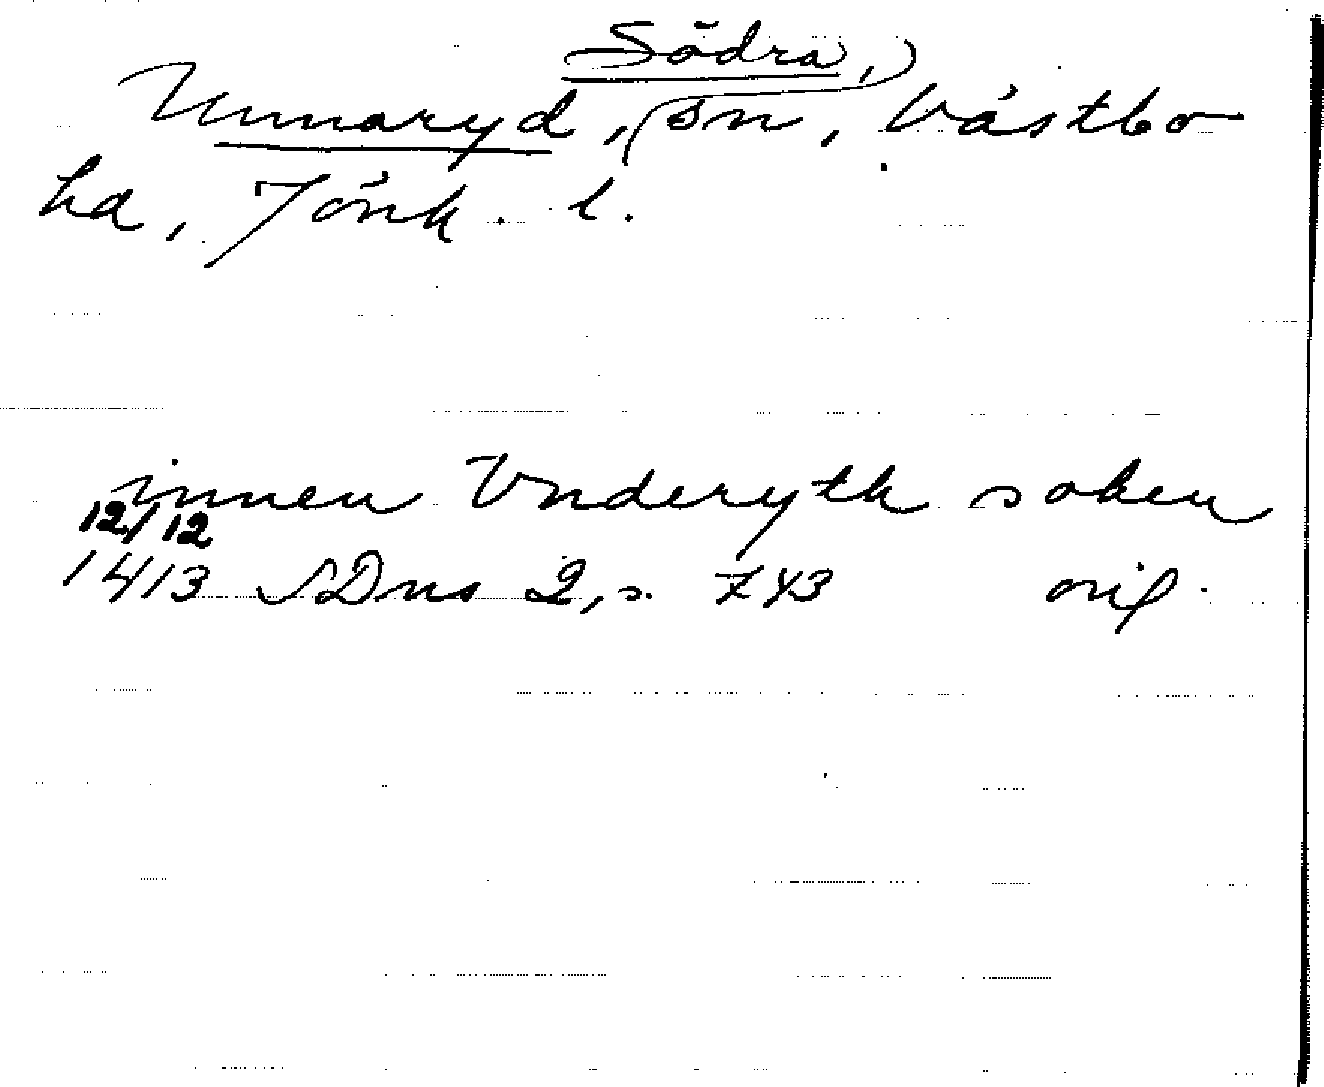 Södra,
Unnaryd, sn, Västbo
hd, Jönk. l.
innen Vnderyth soken
12/12
1413 SDns 2, s. 743 orig.